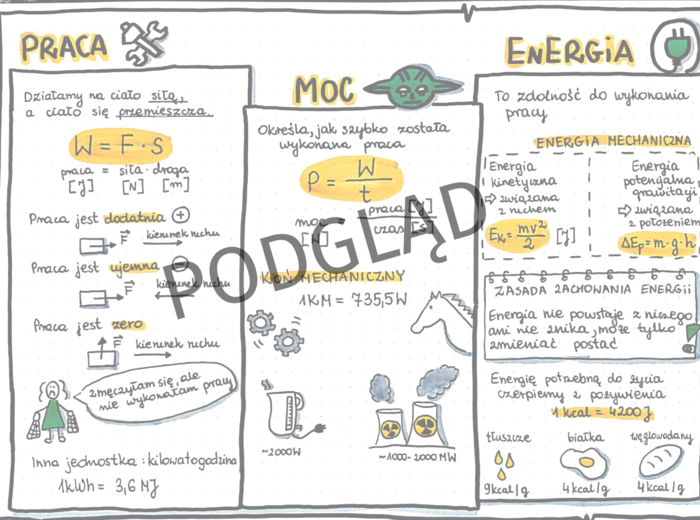 PRACA
Działamy na ciało siłą,
a ciało się przemieszcza.
W = F · s
praca = siła · droga
[J] [N] [m]
Praca jest dodatnia +
F kierunek ruchu
Praca jest ujemna −
F kierunek ruchu
Praca jest zero
F kierunek ruchu
zmęczyłam się, ale
nie wykonałam pracy
Inna jednostka : kilowatogodzina
1kWh = 3,6 MJ
MOC
Określa, jak szybko została
wykonana praca
P = W/t
moc = praca [J]
[W] czas [s]
KOŃ MECHANICZNY
1KM = 735,5W
~2000W
~1000-2000 MW
ENERGIA
To zdolność do wykonania
pracy
ENERGIA MECHANICZNA
Energia
kinetyczna
⇨ związana
z ruchem
Ek = mv²/2 [J]
Energia
potencjalna
grawitacji
⇨ związana
z położeniem
ΔEp = m · g · h
ZASADA ZACHOWANIA ENERGII
Energia nie powstaje z niczego
ani nie znika, może tylko
zmieniać postać
Energię potrzebną do życia
czerpiemy z pożywienia
1 kcal = 4200 J
tłuszcze białka węglowodany
9kcal/g 4kcal/g 4kcal/g
PODGLĄD